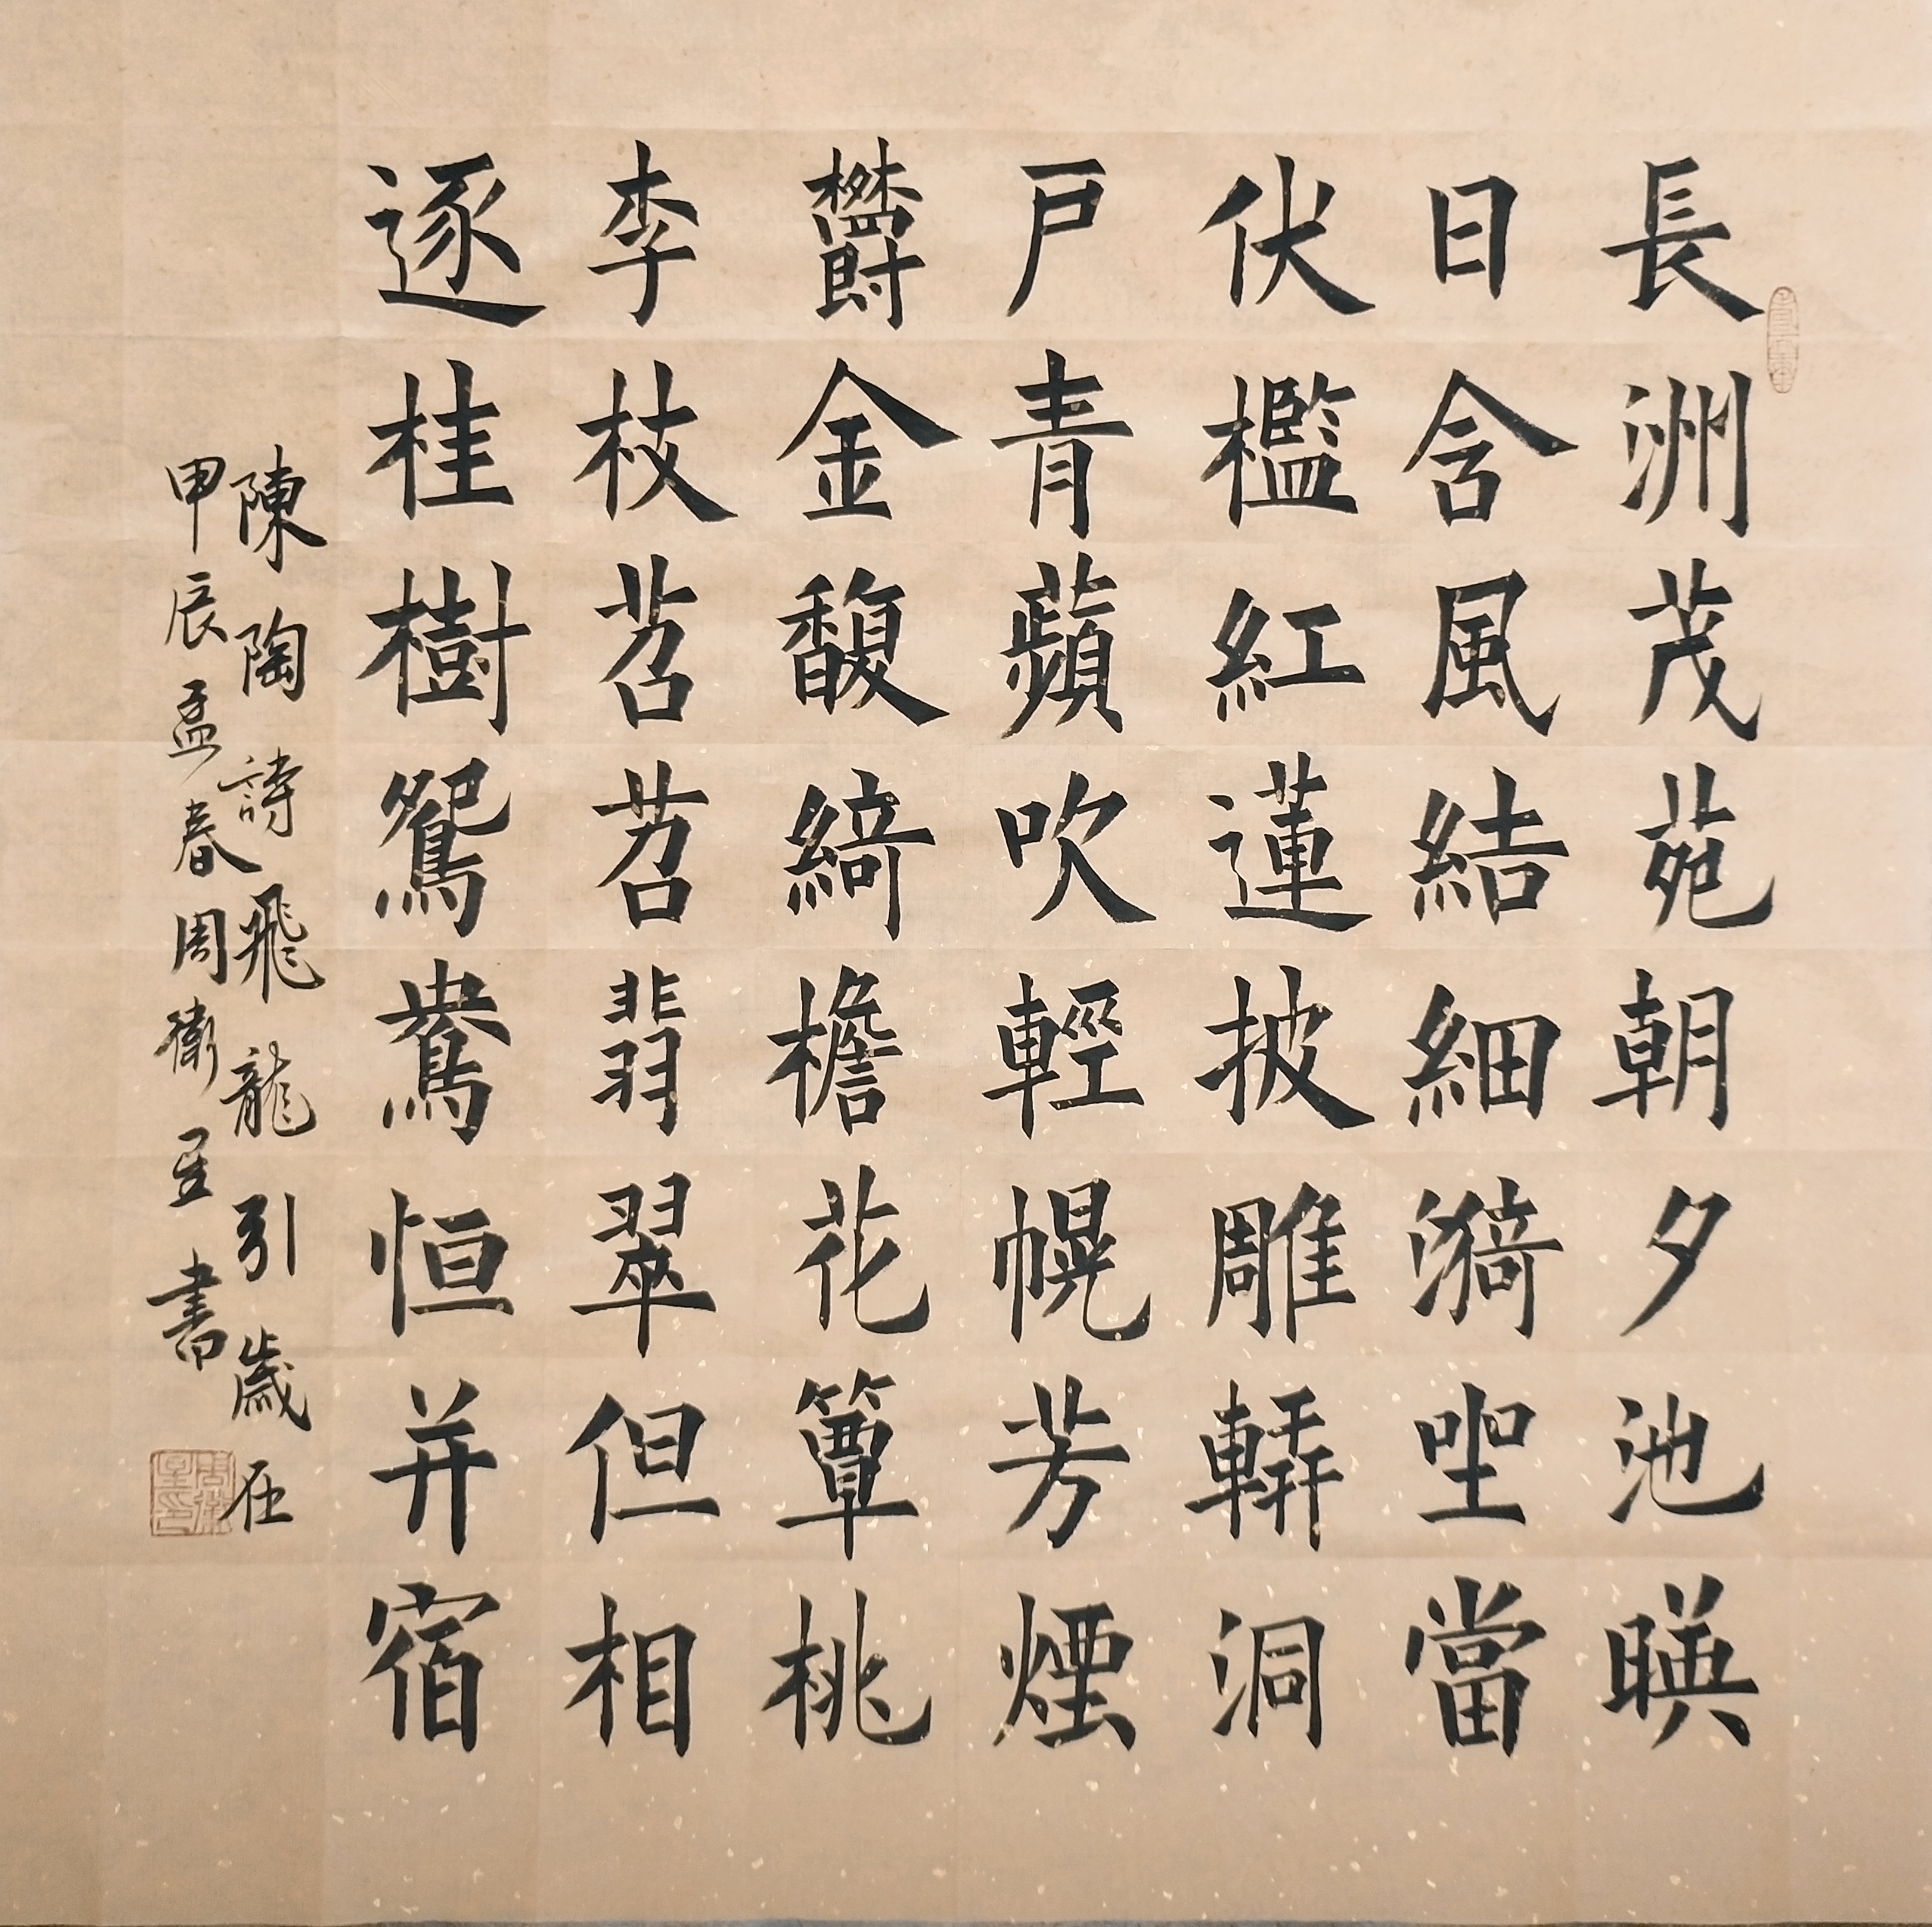 長洲茂苑朝夕池暎
日含風結細漪坐當
伏檻紅蓮披雕軒洞
戸青蘋吹輕幌芳煙
欎金馥綺檐花簟桃
李枝苕苕翡翠但相
逐桂樹鴛鴦恒并宿
陳陶詩飛龍引歲在
甲辰孟春周衛星書
周衛星印